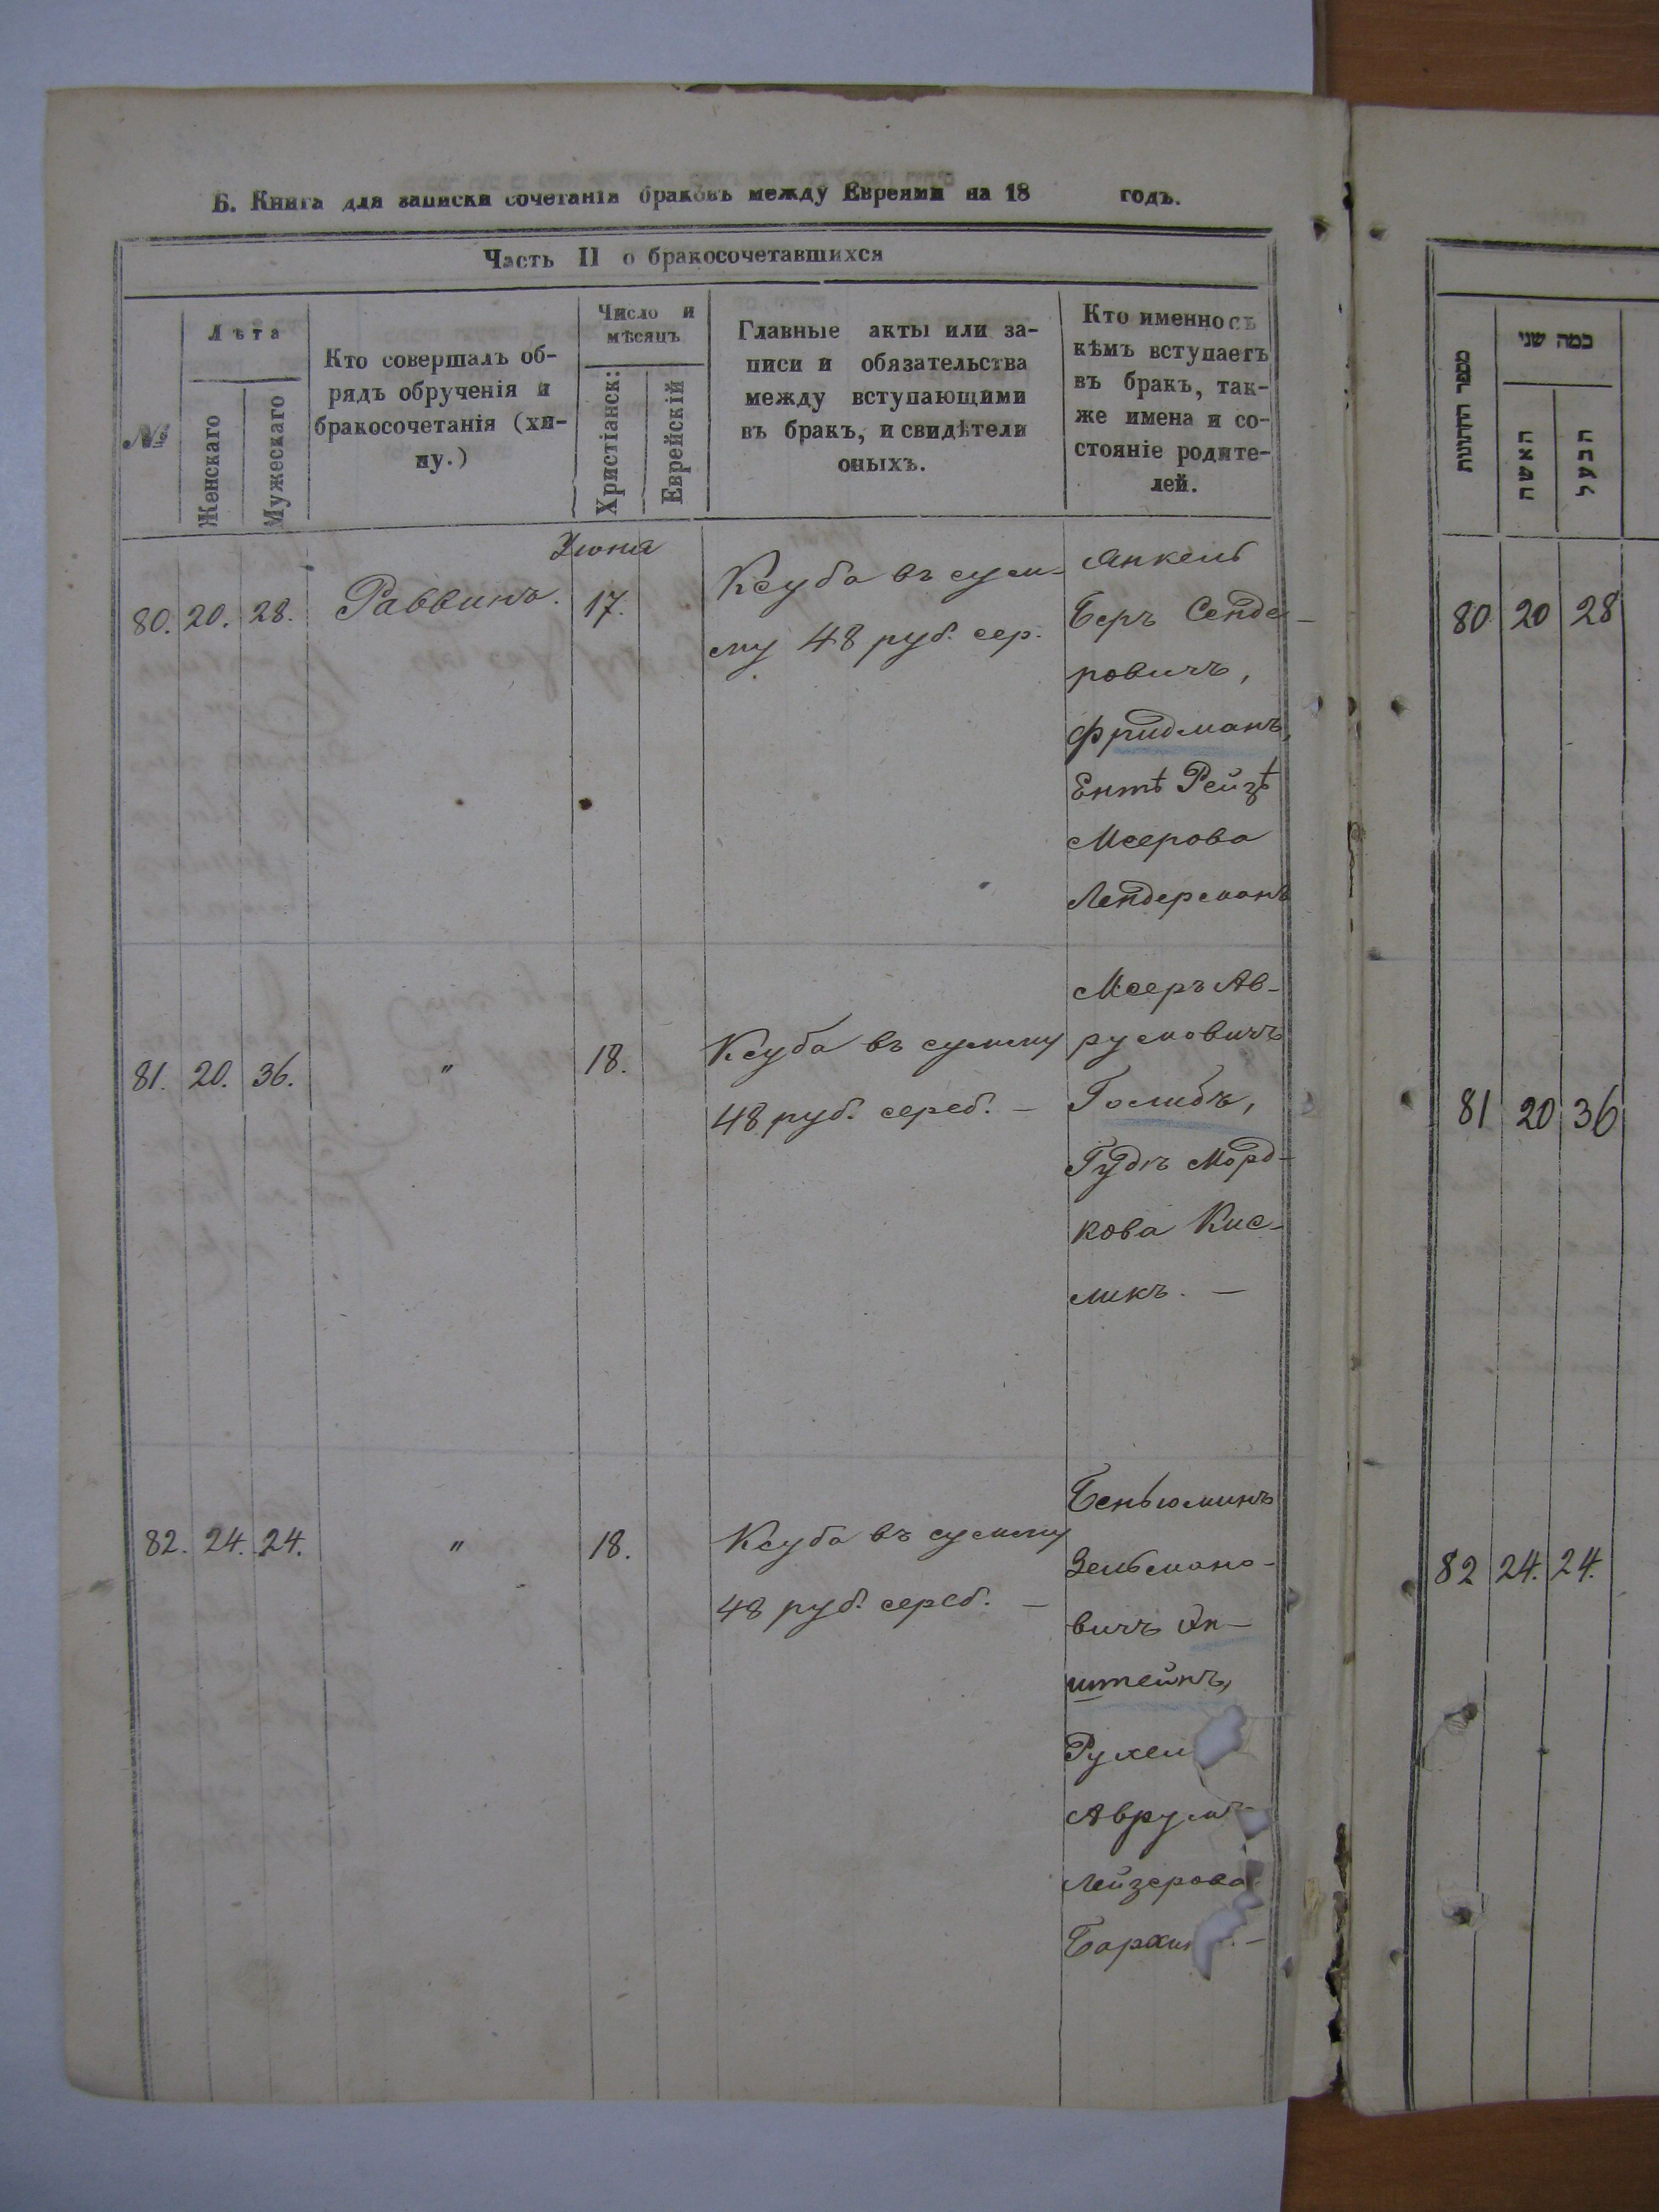 Б. Книга для записки сочетанія браковъ между Евреями на 18 годъ.
Часть II о бракосочетавшихся
№
Лѣта
Женскаго
Мужескаго
Кто совершалъ об-
рядъ обрученія и
бракосочетанія (хи-
пу.)
Число и
мѣсяцъ
Христіанск:
Еврейскій
Главные акты или за-
писи и обязательства
между вступающими
въ бракъ, и свидѣтели
оныхъ.
Кто именно съ
кѣмъ вступаетъ
въ бракъ, так-
же имена и со-
стояніе родите-
лей.
Іюня
80. 20. 28. Раввинъ. 17.
Ксуба въ сум-
му 48 руб. сер.
Янкель
Беръ Сенде-
ровичъ,
Фридманъ,
Ентѣ Рейзѣ
Меерова
Лендерманъ
81. 20. 36. " 18.
Ксуба въ сумму
48 руб. сереб. —
Мееръ Ав-
румовичъ
Голибъ,
Морд-
кова Кис-
ликъ. —
82. 24. 24. " 18.
Ксуба въ сумму
48 руб. сереб. —
Беньюминъ
Зельмано-
вичъ Эп-
штейнъ,
Рухел
Аврумъ
Лейзерова
Бархи
מספר החתונות
כמה שני
האשה
הבעל
80 20 28
81 20 36
82 24. 24.